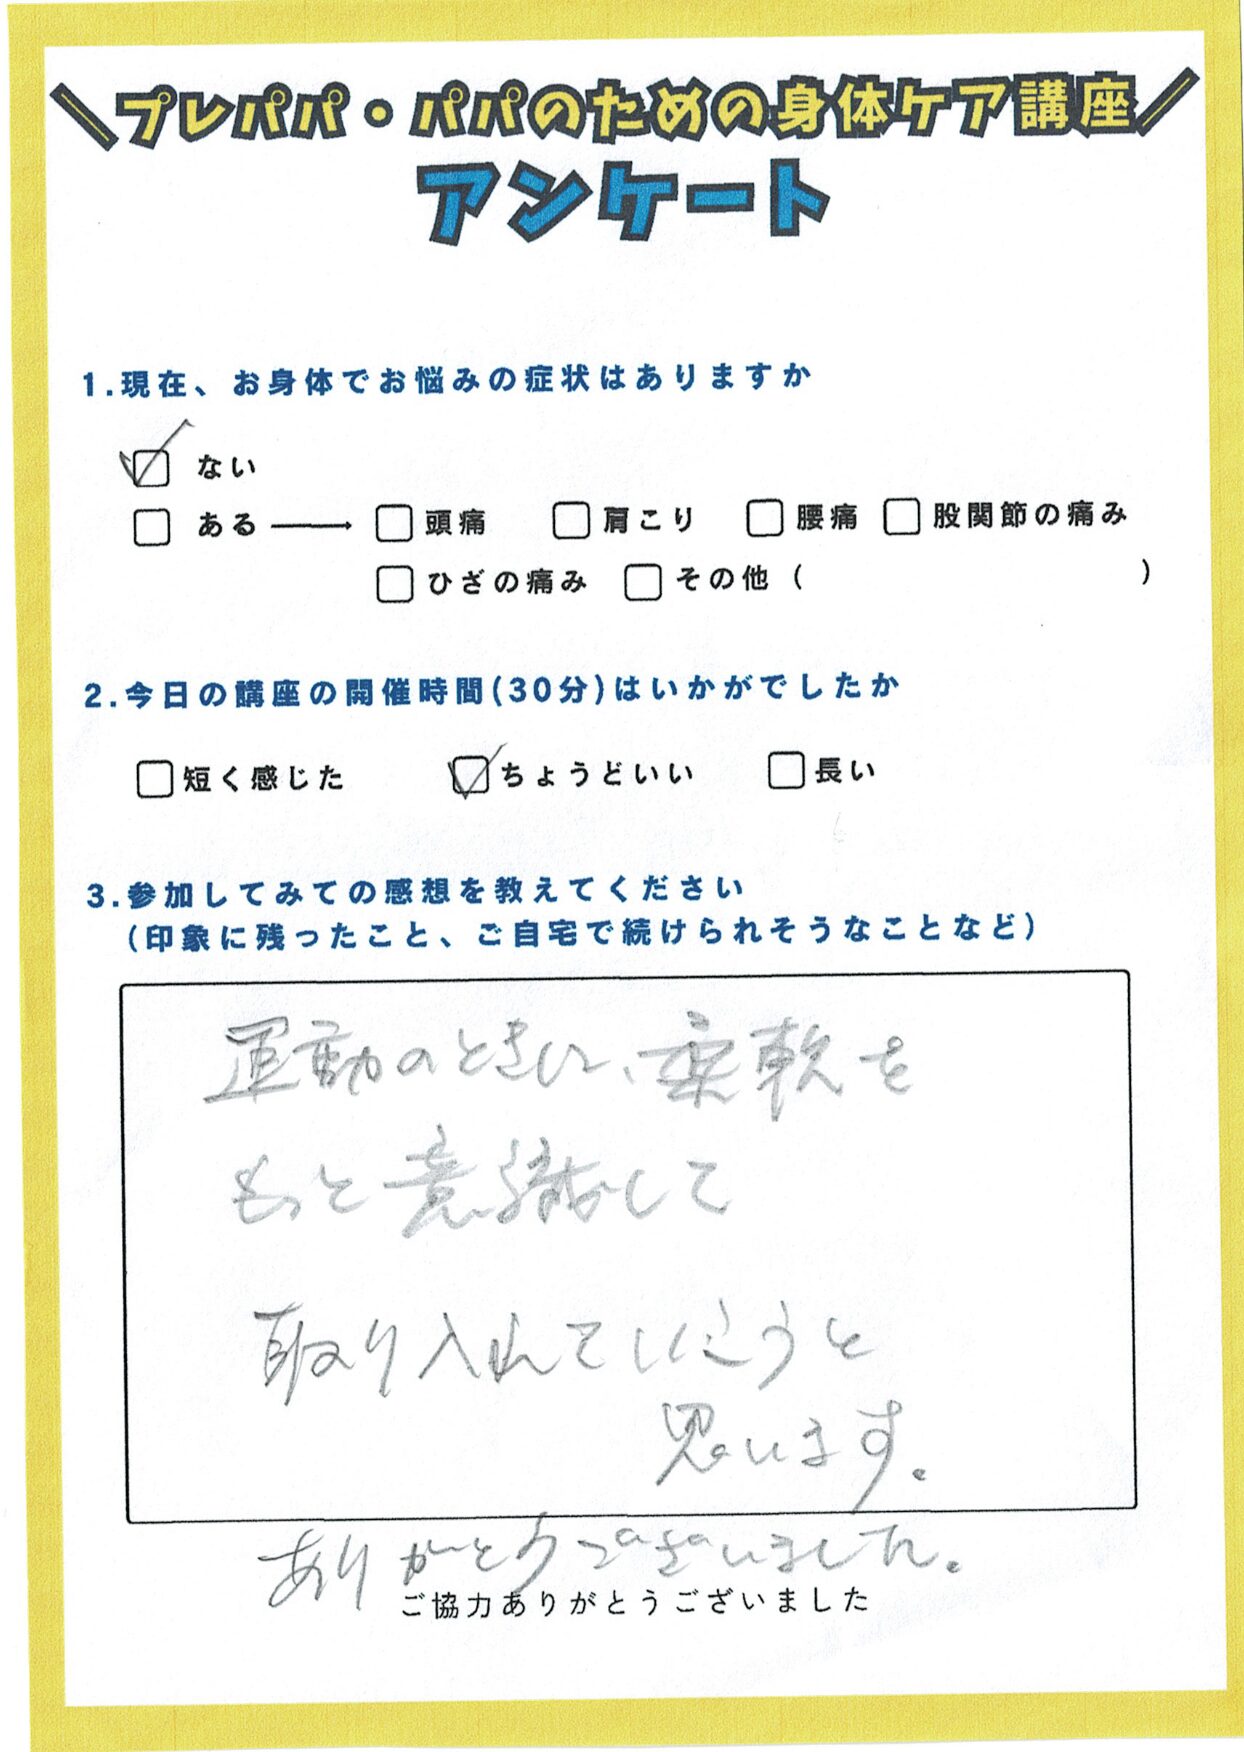 ＼プレパパ・パパのための身体ケア講座／
アンケート
1.現在、お身体でお悩みの症状はありますか
☑ ない
□ ある → □ 頭痛 □ 肩こり □ 腰痛 □ 股関節の痛み
□ ひざの痛み □ その他 ( )
2.今日の講座の開催時間(30分)はいかがでしたか
□ 短く感じた ☑ ちょうどいい □ 長い
3.参加してみての感想を教えてください
(印象に残ったこと、ご自宅で続けられそうなことなど)
運動のときに、柔軟を
もっと意識して
取り入れていこうと
思います。
ありがとうございました。
ご協力ありがとうございました